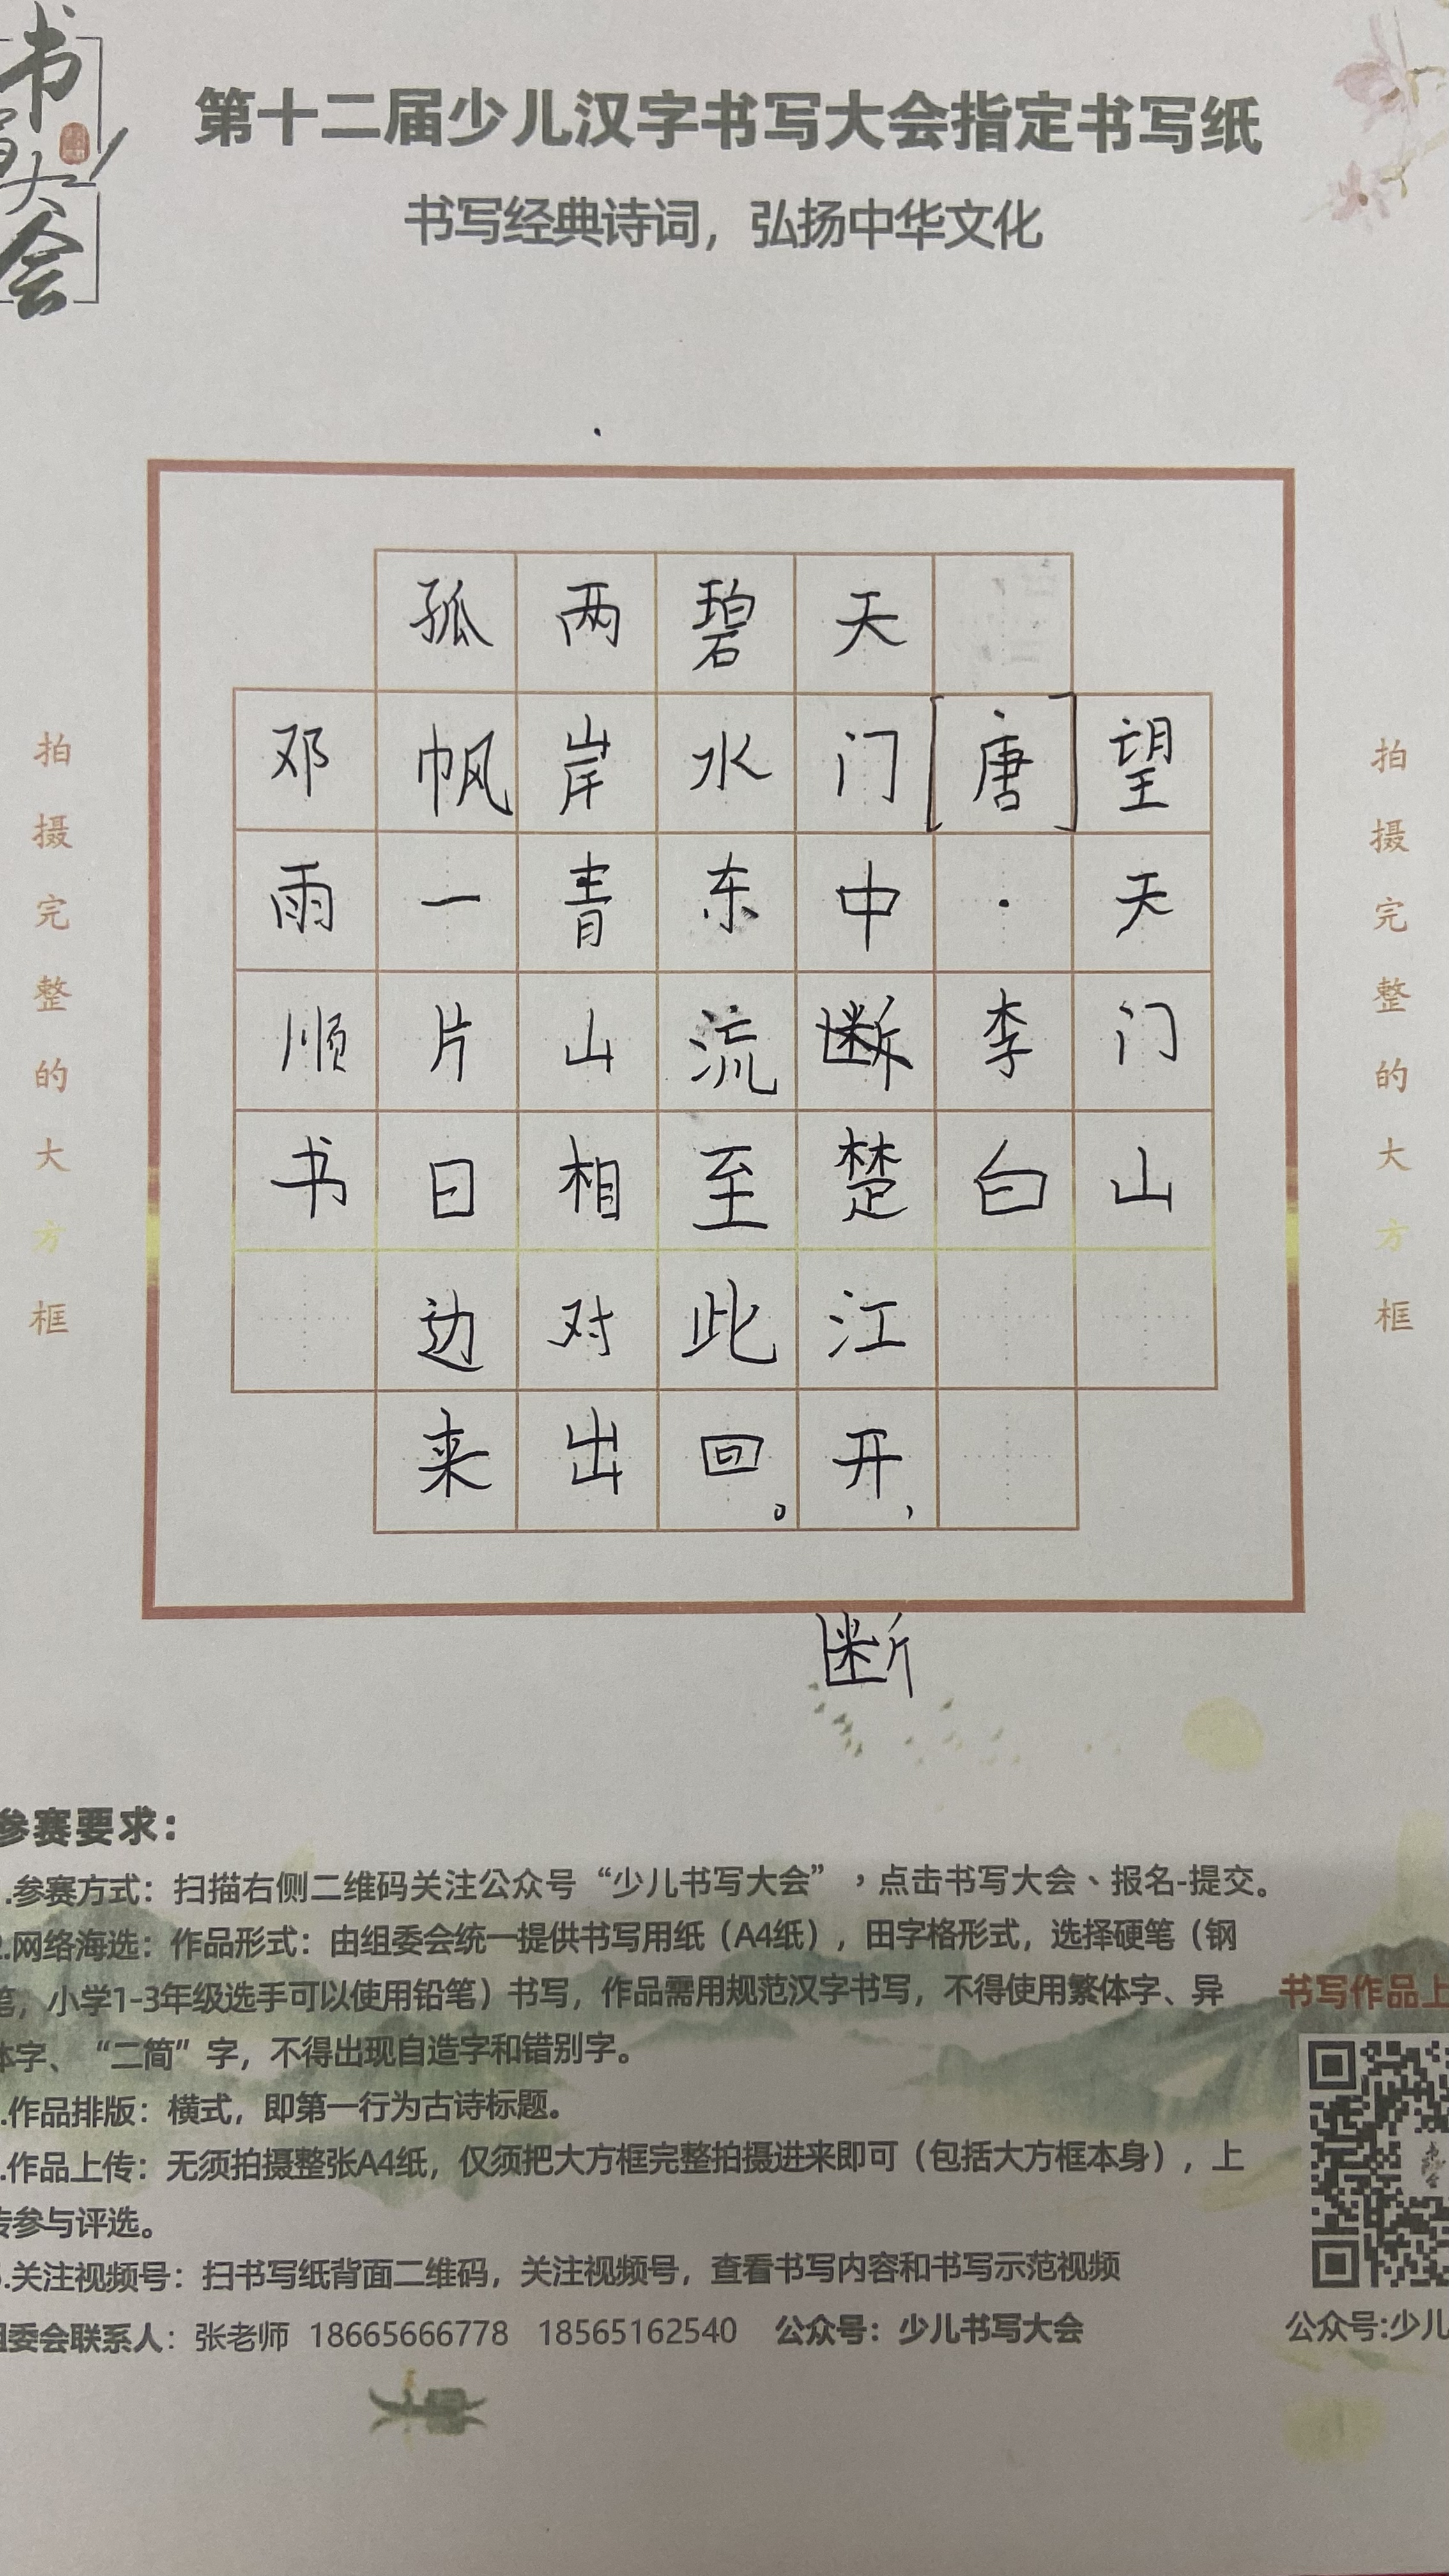 书写大会
第十二届少儿汉字书写大会指定书写纸
书写经典诗词，弘扬中华文化
拍摄完整的大方框
望天门山
[唐]·李白
天门中断楚江开，
碧水东流至此回。
两岸青山相对出
孤帆一片日边来
邓雨顺书
拍摄完整的大方框
断
参赛要求：
.参赛方式：扫描右侧二维码关注公众号“少儿书写大会”，点击书写大会、报名-提交。
2.网络海选：作品形式：由组委会统一提供书写用纸（A4纸），田字格形式，选择硬笔（钢
笔，小学1-3年级选手可以使用铅笔）书写，作品需用规范汉字书写，不得使用繁体字、异
体字、“二简”字，不得出现自造字和错别字。
.作品排版：横式，即第一行为古诗标题。
.作品上传：无须拍摄整张A4纸，仅须把大方框完整拍摄进来即可（包括大方框本身），上
传参与评选。
5.关注视频号：扫书写纸背面二维码，关注视频号，查看书写内容和书写示范视频
组委会联系人：张老师 18665666778 18565162540 公众号：少儿书写大会
书写作品上
公众号:少儿